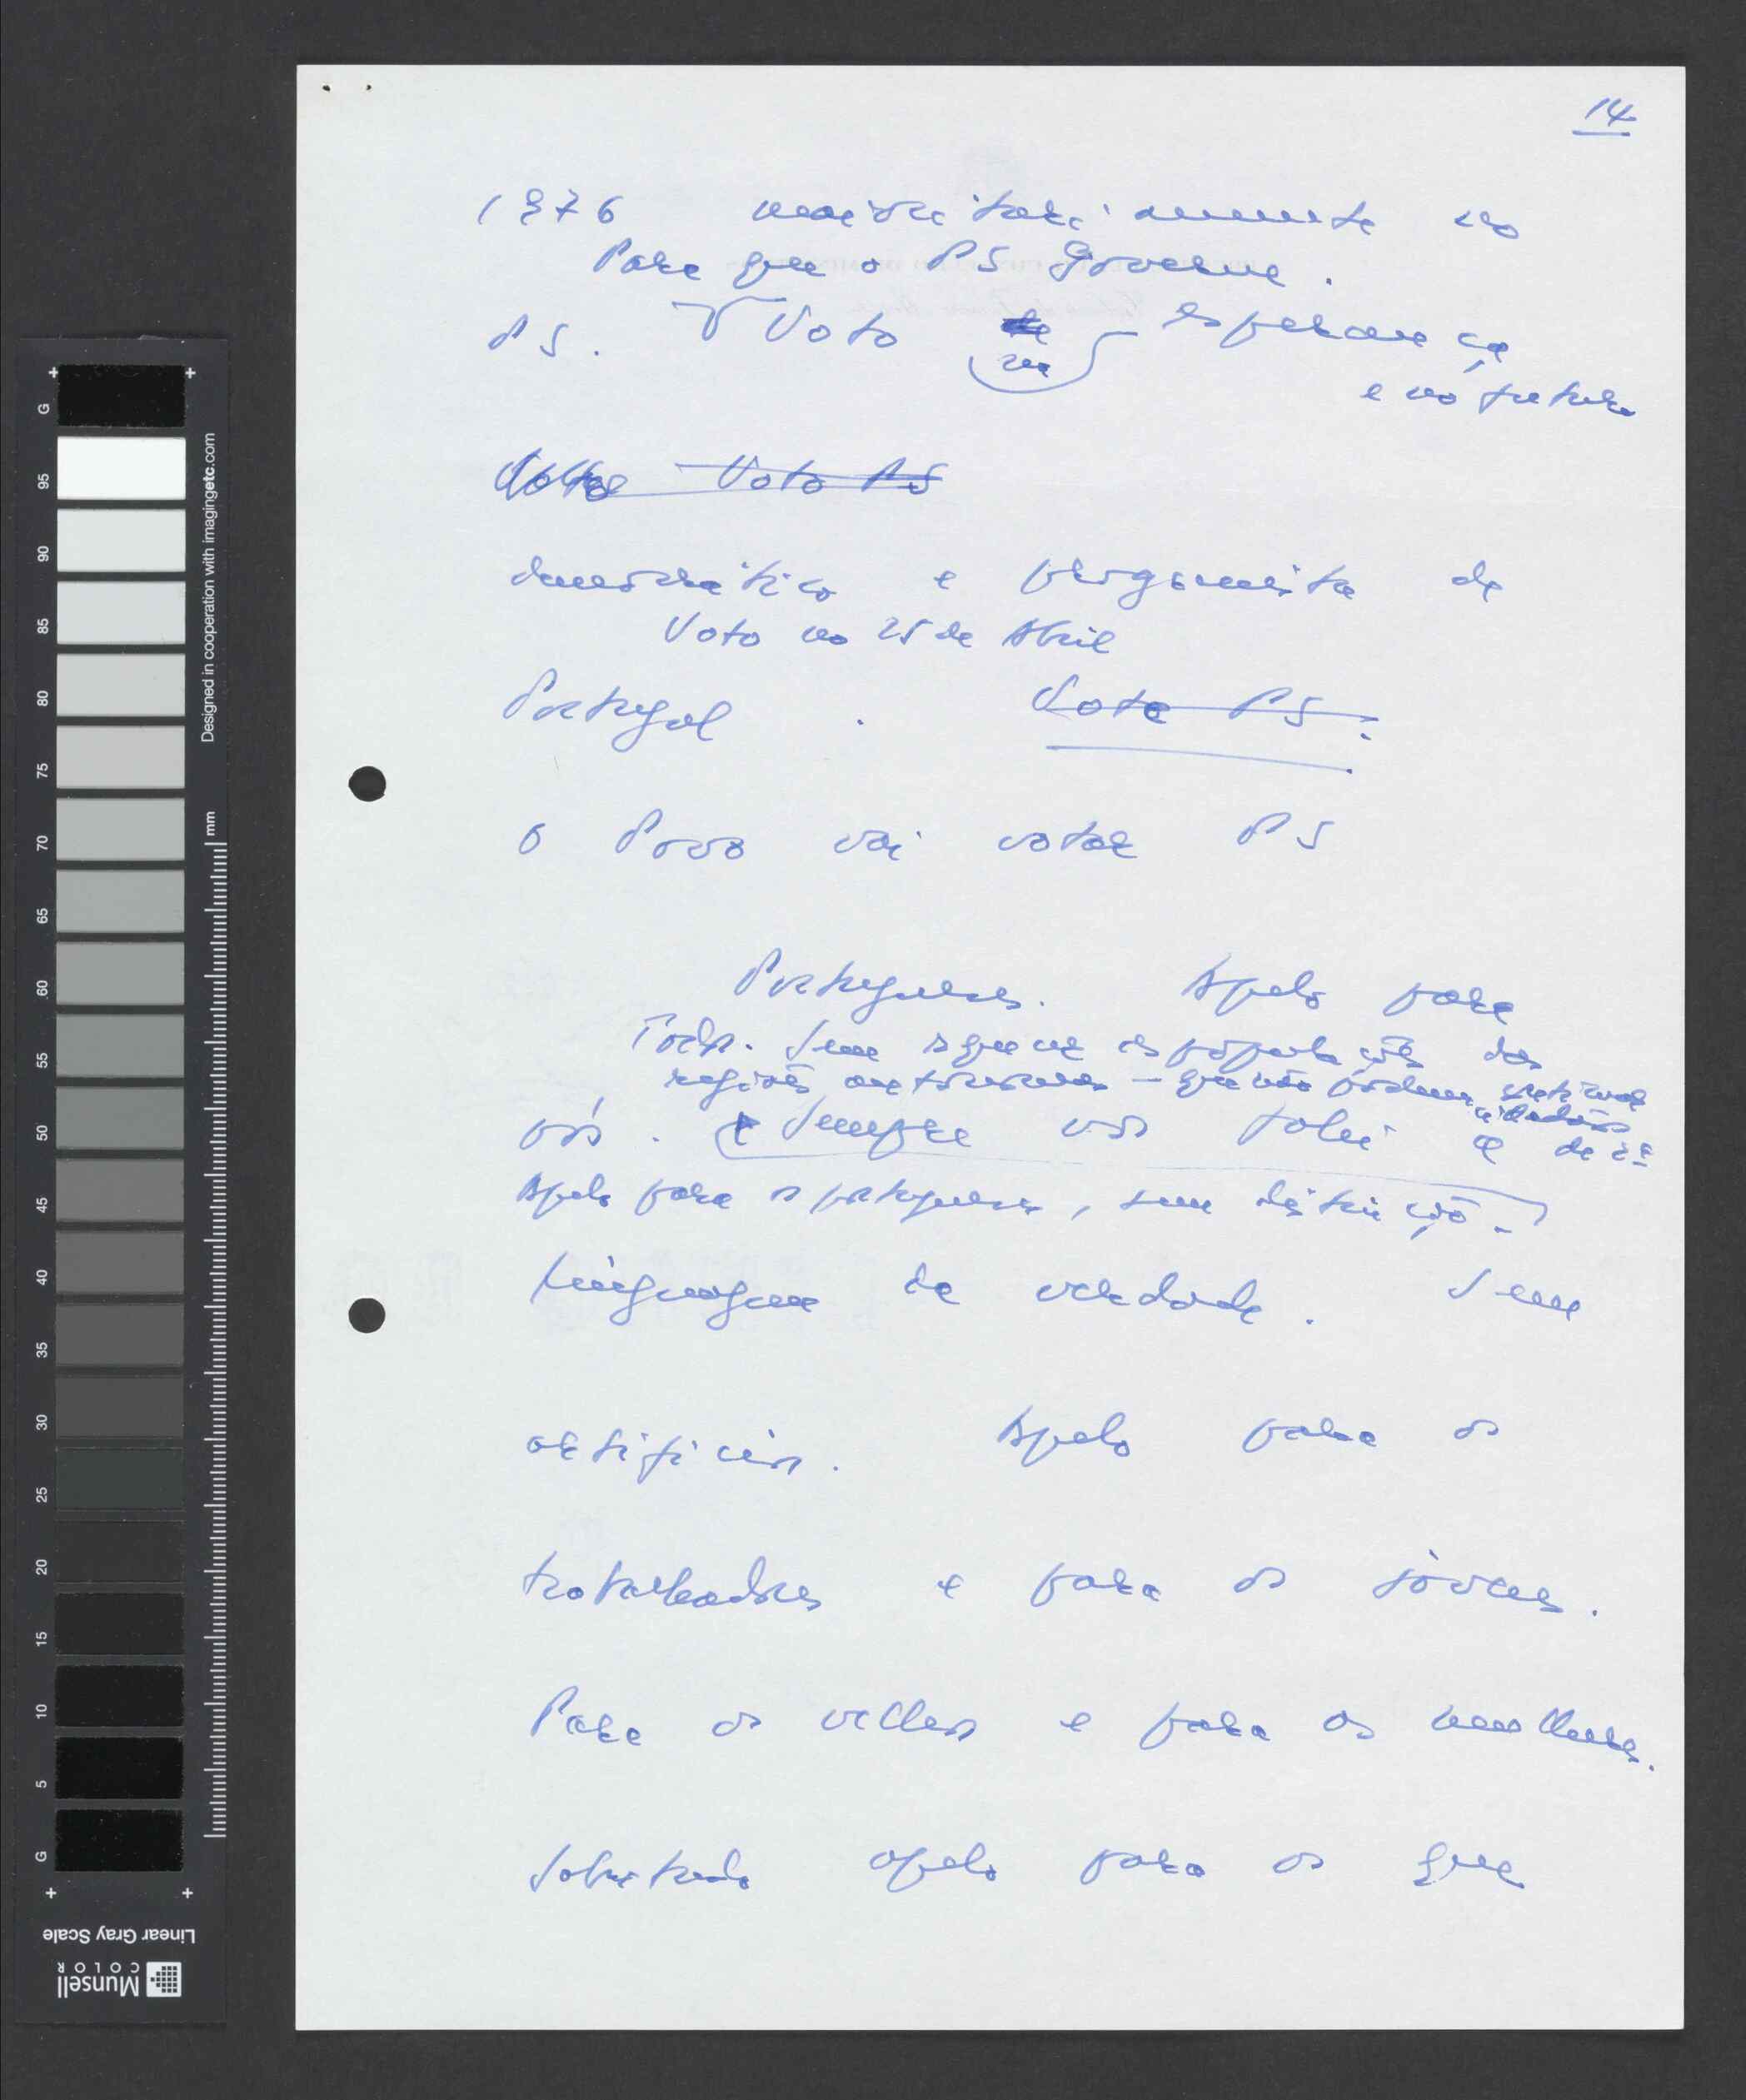 14
1976 maioritariamente no
Para que o PS Governe.
PS. Voto de na esperança
e no futuro
Votar Voto PS
democrático e progressista de
Voto no 25 de Abril
Portugal. Vote PS.
O Povo vai votar PS
Portugueses. Apelo para
Todos. Sem esquecer as populações das
regiões autónomas – que não podem sentir-se
cidadãos
vós. e Sempre vos falei a de 2ª
Apelo para os portugueses, sem distinção.
linguagem da verdade. Sem
artifícios. Apelo para os
trabalhadores e para os jóvens.
Para os velhos e para as mulheres.
Sobretudo apelo para os que
G
95
90
85
80
75
70
65
60
55
50
45
40
35
30
25
20
15
10
5
G
Designed in cooperation with imagingetc.com
mm
Linear Gray Scale
Munsell
COLOR